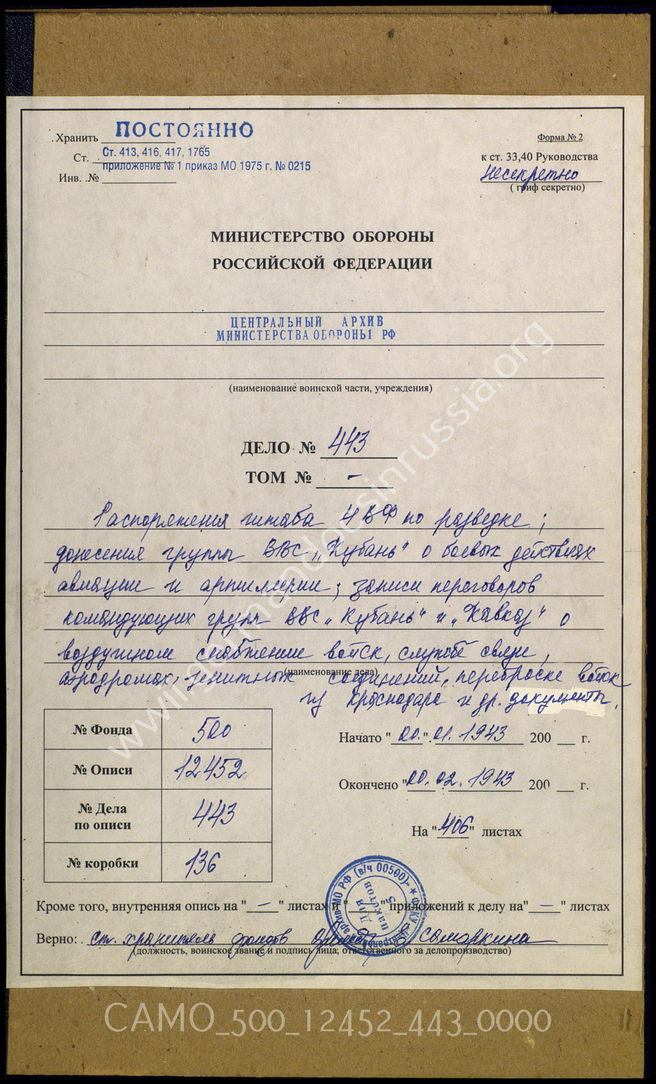 Хранить ПОСТОЯННО
Ст. Ст. 413, 416, 417, 1765
приложение № 1 приказ МО 1975 г. № 0215
Инв. №
Форма № 2
к ст. 33,40 Руководства
Несекретно
( гриф секретно)
МИНИСТЕРСТВО ОБОРОНЫ
РОССИЙСКОЙ ФЕДЕРАЦИИ
ЦЕНТРАЛЬНЫЙ АРХИВ
МИНИСТЕРСТВА ОБОРОНЫ РФ
(наименование воинской части, учреждения)
ДЕЛО № 443
ТОМ № –
Распоряжения штаба 4 ВФ по разведке;
донесения группы ВВС "Кубань" о боевых действиях
авиации и артиллерии; записи переговоров
командующих групп ВВС "Кубань" и "Кавказ" о
воздушном снабжение войск, службе связи,
аэродромах, зенитных соединений, переброске войск
(наименование дела)
из Краснодара и др. документы.
№ Фонда 500
№ Описи 12452
№ Дела по описи 443
№ коробки 136
Начато "00".01.1943 200 г.
Окончено "00.02.1943 200 г.
На "406" листах
Кроме того, внутренняя опись на "–" листах и " " приложений к делу на "–" листах
Верно: ст. хранитель фондов Самаркина
(должность, воинское звание и подпись лица, ответственного за делопроизводство)
МО РФ (в/ч 00500)
Для пакетов
www.germandocsinrussia.org
CAMO_500_12452_443_0000